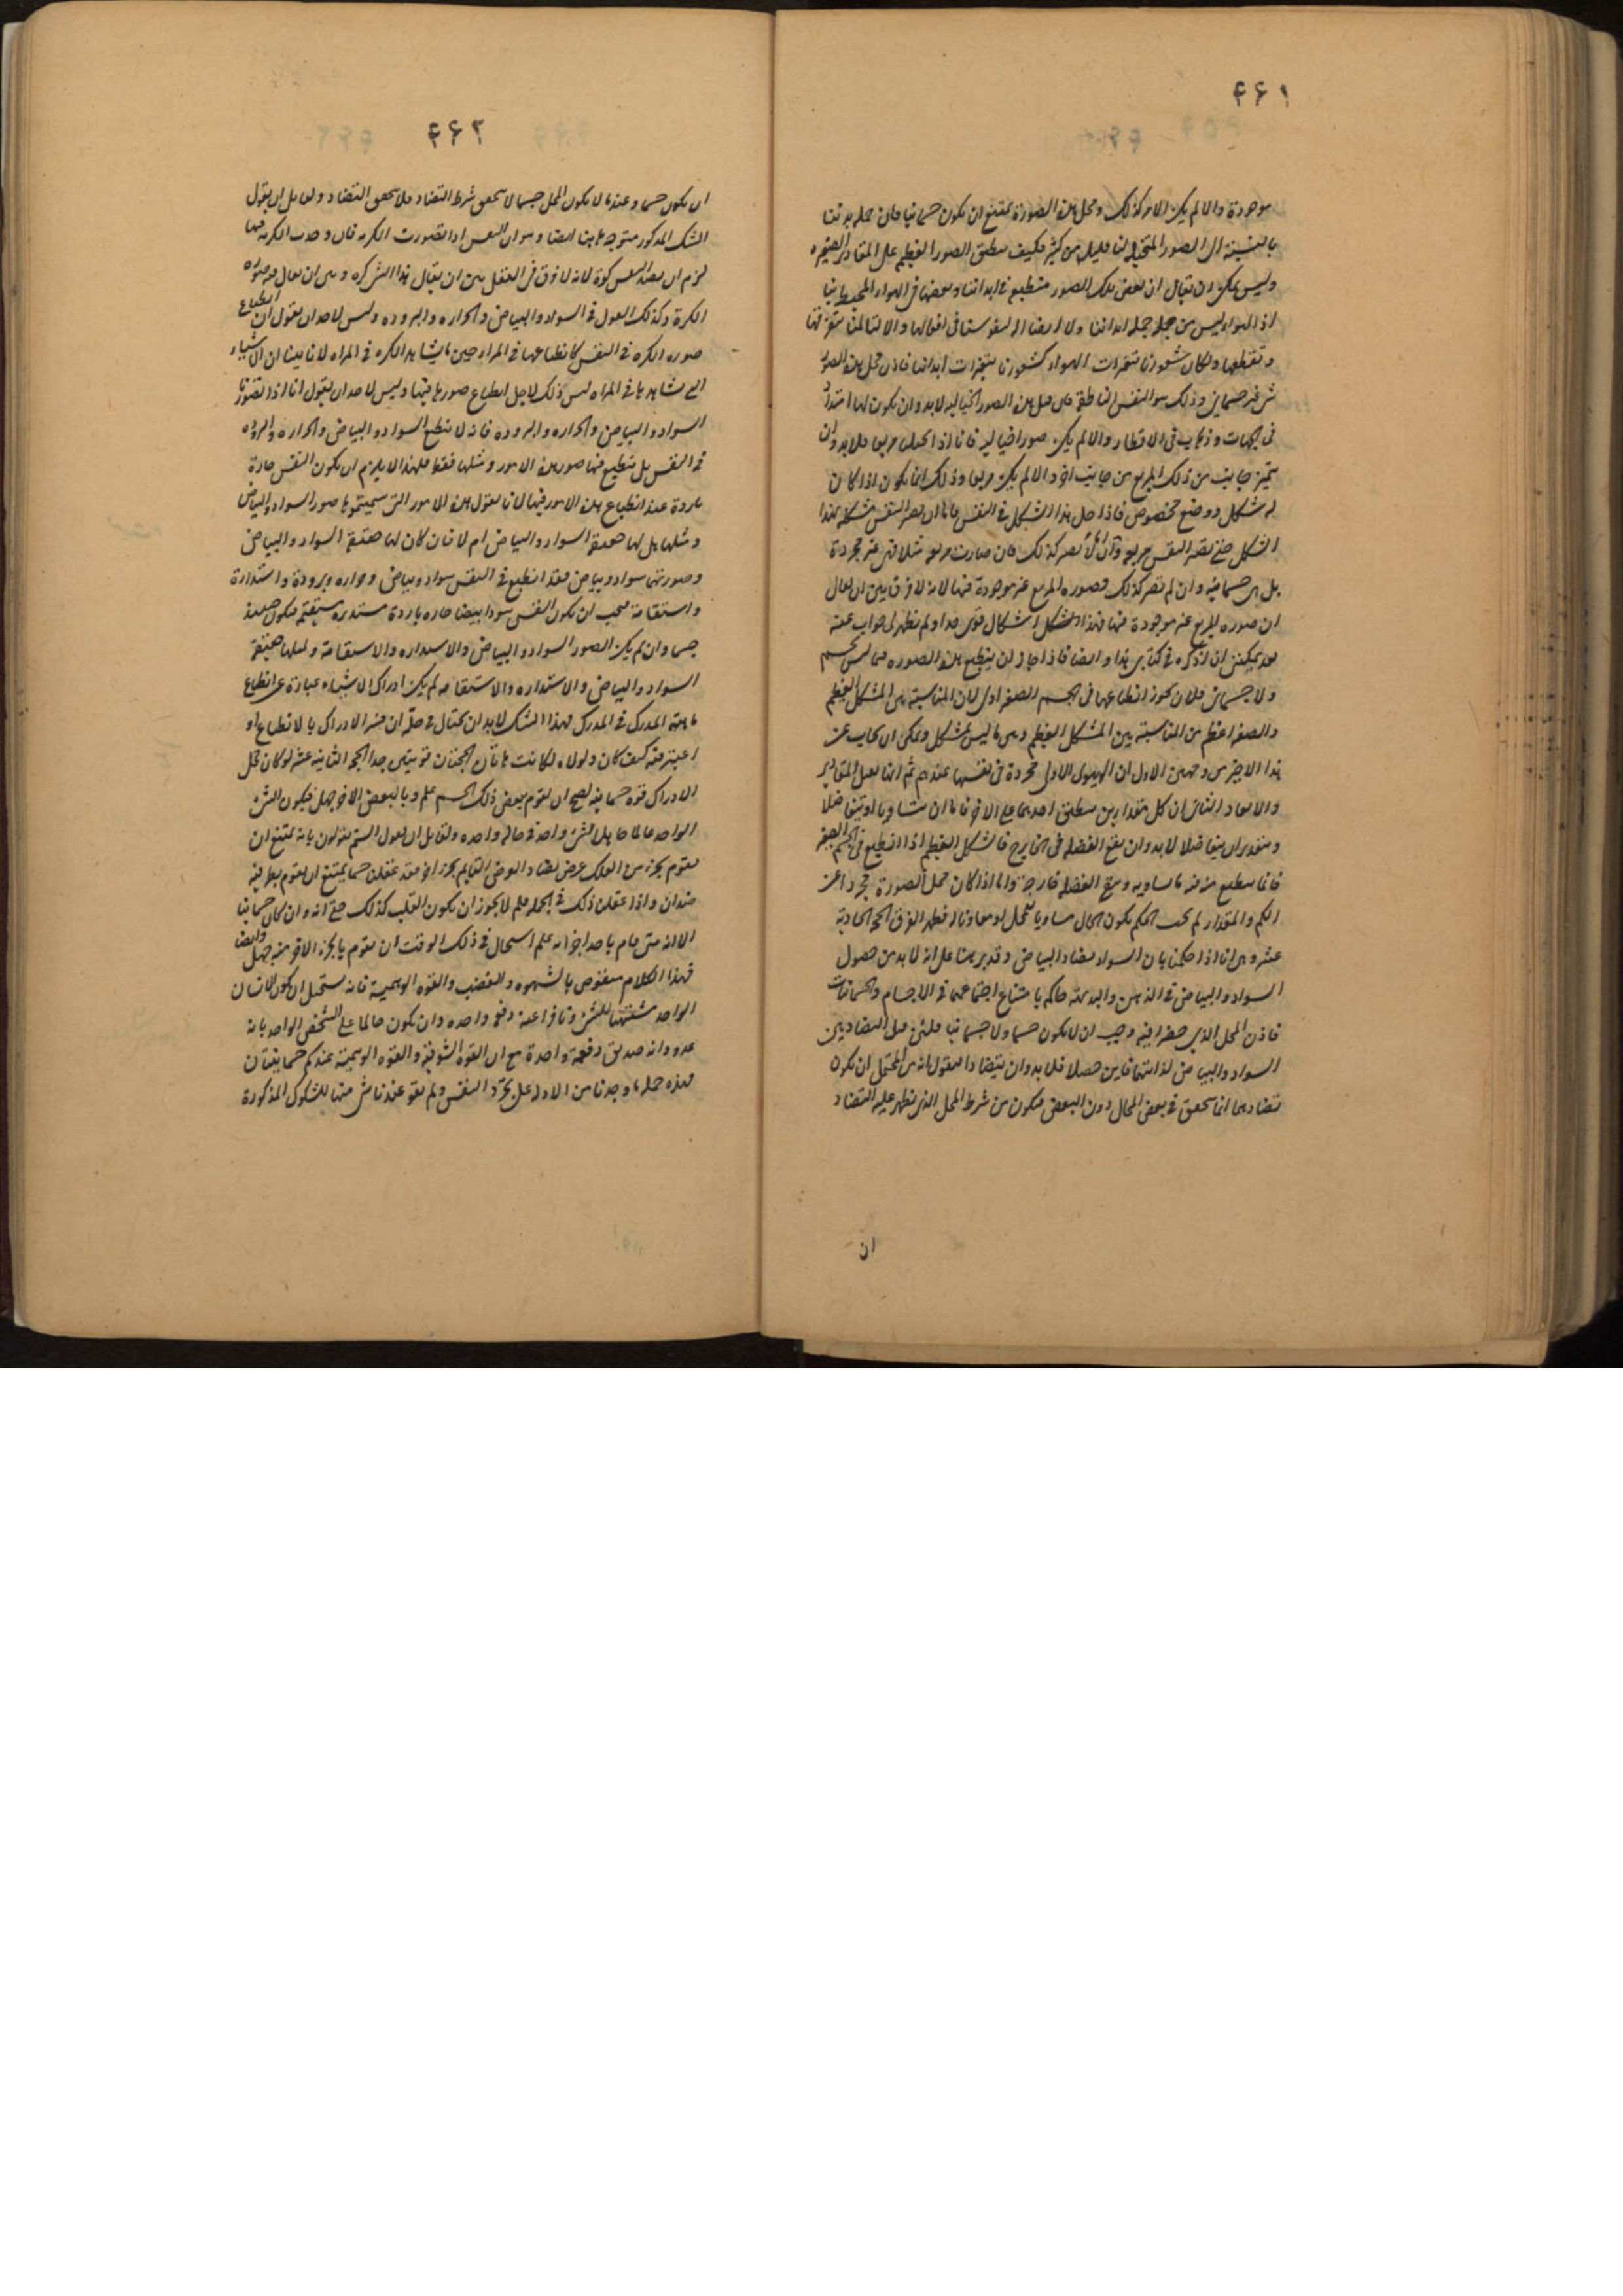 ۴۶۱
موجودة والا لم يكن الامر كذلك ومحل هذه الصورة يمتنع ان يكون جسمانيا فان جملة بدننا
بالنسبة الى الصور المتخيلة لنا قليل من كثير فكيف ينطبق الصور العظيم على المقادير الصغيره
وليس يمكن ان يقال ان بعض تلك الصور منطبع فى ابداننا وبعضها فى الهواء المحيط بنا
اذ الهواء ليس من جملة ابداننا ولا ايضا آلة لنفوسنا فى افعالها والا لتألمت بتفرقها
وتقطعها ولكان شعورنا بتغيرات الهواء كشعورنا بتغيرات ابداننا فاذن محل هذه الصور
شئ غير جسمانى وذلك هو النفس الناطقة
فى الجهات وذهاب فى الاقطار والا لم يكن صورا خياليه فانا اذا تخيلنا مربعا فلا بد وان
يتميز جانب من ذلك المربع عن جانب اخر والا لم يكن مربعا وذلك انما يكون اذا كان
له شكل ووضع مخصوص فاذا حل هذا الشكل فى النفس فاما ان يصير النفس مشكله بهذا
الشكل حتى تصير النفس مربعة واما ان لا تصير كذلك فان صارت مربعه مثلا فهى غير مجردة
بل هى جسمانيه وان لم تصر كذلك فصوره المربع غير موجودة فيها لانه لا فرق بين ان يقال
ان صوره المربع غير موجودة فيها فهذا الشكل اشكال قوى جدا ولم يظهر لى جواب عنه
بعد يمكننى ان اذكره فى كتابى هذا وايضا فاذا جاز ان ينطبع هذه الصوره فيما ليس بجسم
ولا جسمانى فلان يجوز انطباعها فى الجسم الصغير اولى لان المناسبة بين الشكل العظيم
والصغير اعظم من المناسبة بين المشكل العظيم وبين ما ليس بمشكل ويمكن ان يجاب عن
هذا الاخير من وجهين الاول ان الهيولى الاولى مجردة فى نفسها عندهم ثم انها تقبل المقادير
والابعاد الثانى ان كل مقدارين ينطبق احدهما على الاخر فاما ان يتساويا او يتفاضلا
وبتقدير ان يتفاضلا لا بد وان يقع الفضله فى الخارج فالشكل العظيم اذا انطبع فى الجسم الصغير
فانما ينطبع منه فيه ما يساويه ويبقى الفضله خارجة واما اذا كان محل الصورة مجردا عن
الكم والمقدار لم يجب الحكم بكون الحال مساويا للمحل او مفاوتا له فظهر الفرق الحجة الحادية
عشر وهى انا اذا حكمنا بان السواد يضاد البياض وقد برهنا على انه لا بد من حصول
السواد والبياض فى الذهن والبديهة حاكمة بامتناع اجتماعهما فى الاجسام والجسمانيات
فاذن المحل الذى حضرا فيه وجب ان لا يكون جسما ولا جسمانيا
السواد والبياض لذاتيهما فاين حصلا فلا بد وان يتضادا فنقول انه من المحتمل ان يكون
تضادهما انما يتحقق فى بعض المحال دون البعض فيكون من شرط المحل الذى يظهر عليه التضاد
ان
۴۶۲
ان يكون جسما وعندما لا يكون المحل جسما لا يتحقق شرط التضاد فلا يتحقق التضاد ولقائل ان يقول
الشك المذكور متوجه هاهنا ايضا وهو ان النفس اذا تصورت الكره فان وجدت الكره فيها
لزم ان يصير النفس كرة لانه لا فرق فى العقل بين ان يقال هذا الشئ كره وبين ان يقال فيه صوره
الكرة وكذلك القول فى السواد والبياض والحراره والبروده وليس لاحد ان يقول ان انطباع
صوره الكره فى النفس كانطباعها فى المراة حين ما يشاهد الكره فى المراه لانا بينا ان الاشياء
التى نشاهدها فى المراه ليس ذلك لاجل انطباع صورها فيها وليس لاحد ان يقول انا اذا تصورنا
السواد والبياض والحراره والبروده فانه لا ينطبع السواد والبياض والحراره والبروده
فى النفس بل ينطبع فيها صور هذه الامور ومثلها فقط فلهذا لا يلزم ان يكون النفس حارة
باردة عند انطباع هذه الامور فيها لانا نقول هذه الامور التى سميتموها صور السواد والبياض
ومثلها هل لها حقيقة السواد والبياض ام لا فان كان لها حقيقة السواد والبياض
وصورتها سواد وبياض فقد انطبع فى النفس سواد وبياض وحراره وبرودة واستدارة
واستقامة فيجب ان يكون النفس سودا بيضا حاره باردة مستديره مستقيمة فيكون حينئذ
جسما وان لم يكن الصور السواد والبياض والاستداره والاستقامة ولمثلها حقيقة
السواد والبياض والاستداره والاستقامه لم يكن ادراك الاشياء عبارة عن انطباع
ماهية المدرك فى المدرك فهذا الشك لا بد ان يحتال فى حله ان فسر الادراك بالانطباع او
اعتبر فيه كيف كان ولولاه لكانت هاتان الحجتان قويتين جدا الحجة الثانيه عشر لو كان محل
الادراك قوه جسمانية لصح ان يقوم ببعض ذلك الجسم علم وبالبعض الاخر جهل فيكون الشئ
الواحد عالما جاهلا بشئ واحد فى حاله واحده ولقائل ان يقول الستم تقولون بانه يمتنع ان
يقوم بجزء من الفلك عرض يضاد العرض القايم بجزء اخر فقد عقلتم جسما يمتنع ان يقوم بطرفيه
ضدان واذا عقلتم ذلك فى الجمله فلم لا يجوز ان يكون القلب كذلك حتى انه وان كان جسمانيا
الا انه متى قام باحد اجزائه علم استحال فى ذلك الوقت ان يقوم بالجزء الاخر منه جهل وايضا
فهذا الكلام منقوض بالشهوه والغضب والقوه الوهمية فانه يستحيل ان يكون الانسان
الواحد مشتهيا للشئ ونافرا عنه دفعه واحده وان يكون حاكما على الشخص الواحد بانه
عدو وانه صديق دفعة واحدة مع ان القوه الشوقية والقوه الوهمية عندكم جسمانيتان
فهذه جملة ما وجدنا من الادله على تجرد النفس ولم يقو عندنا شئ منها للشكوك المذكورة